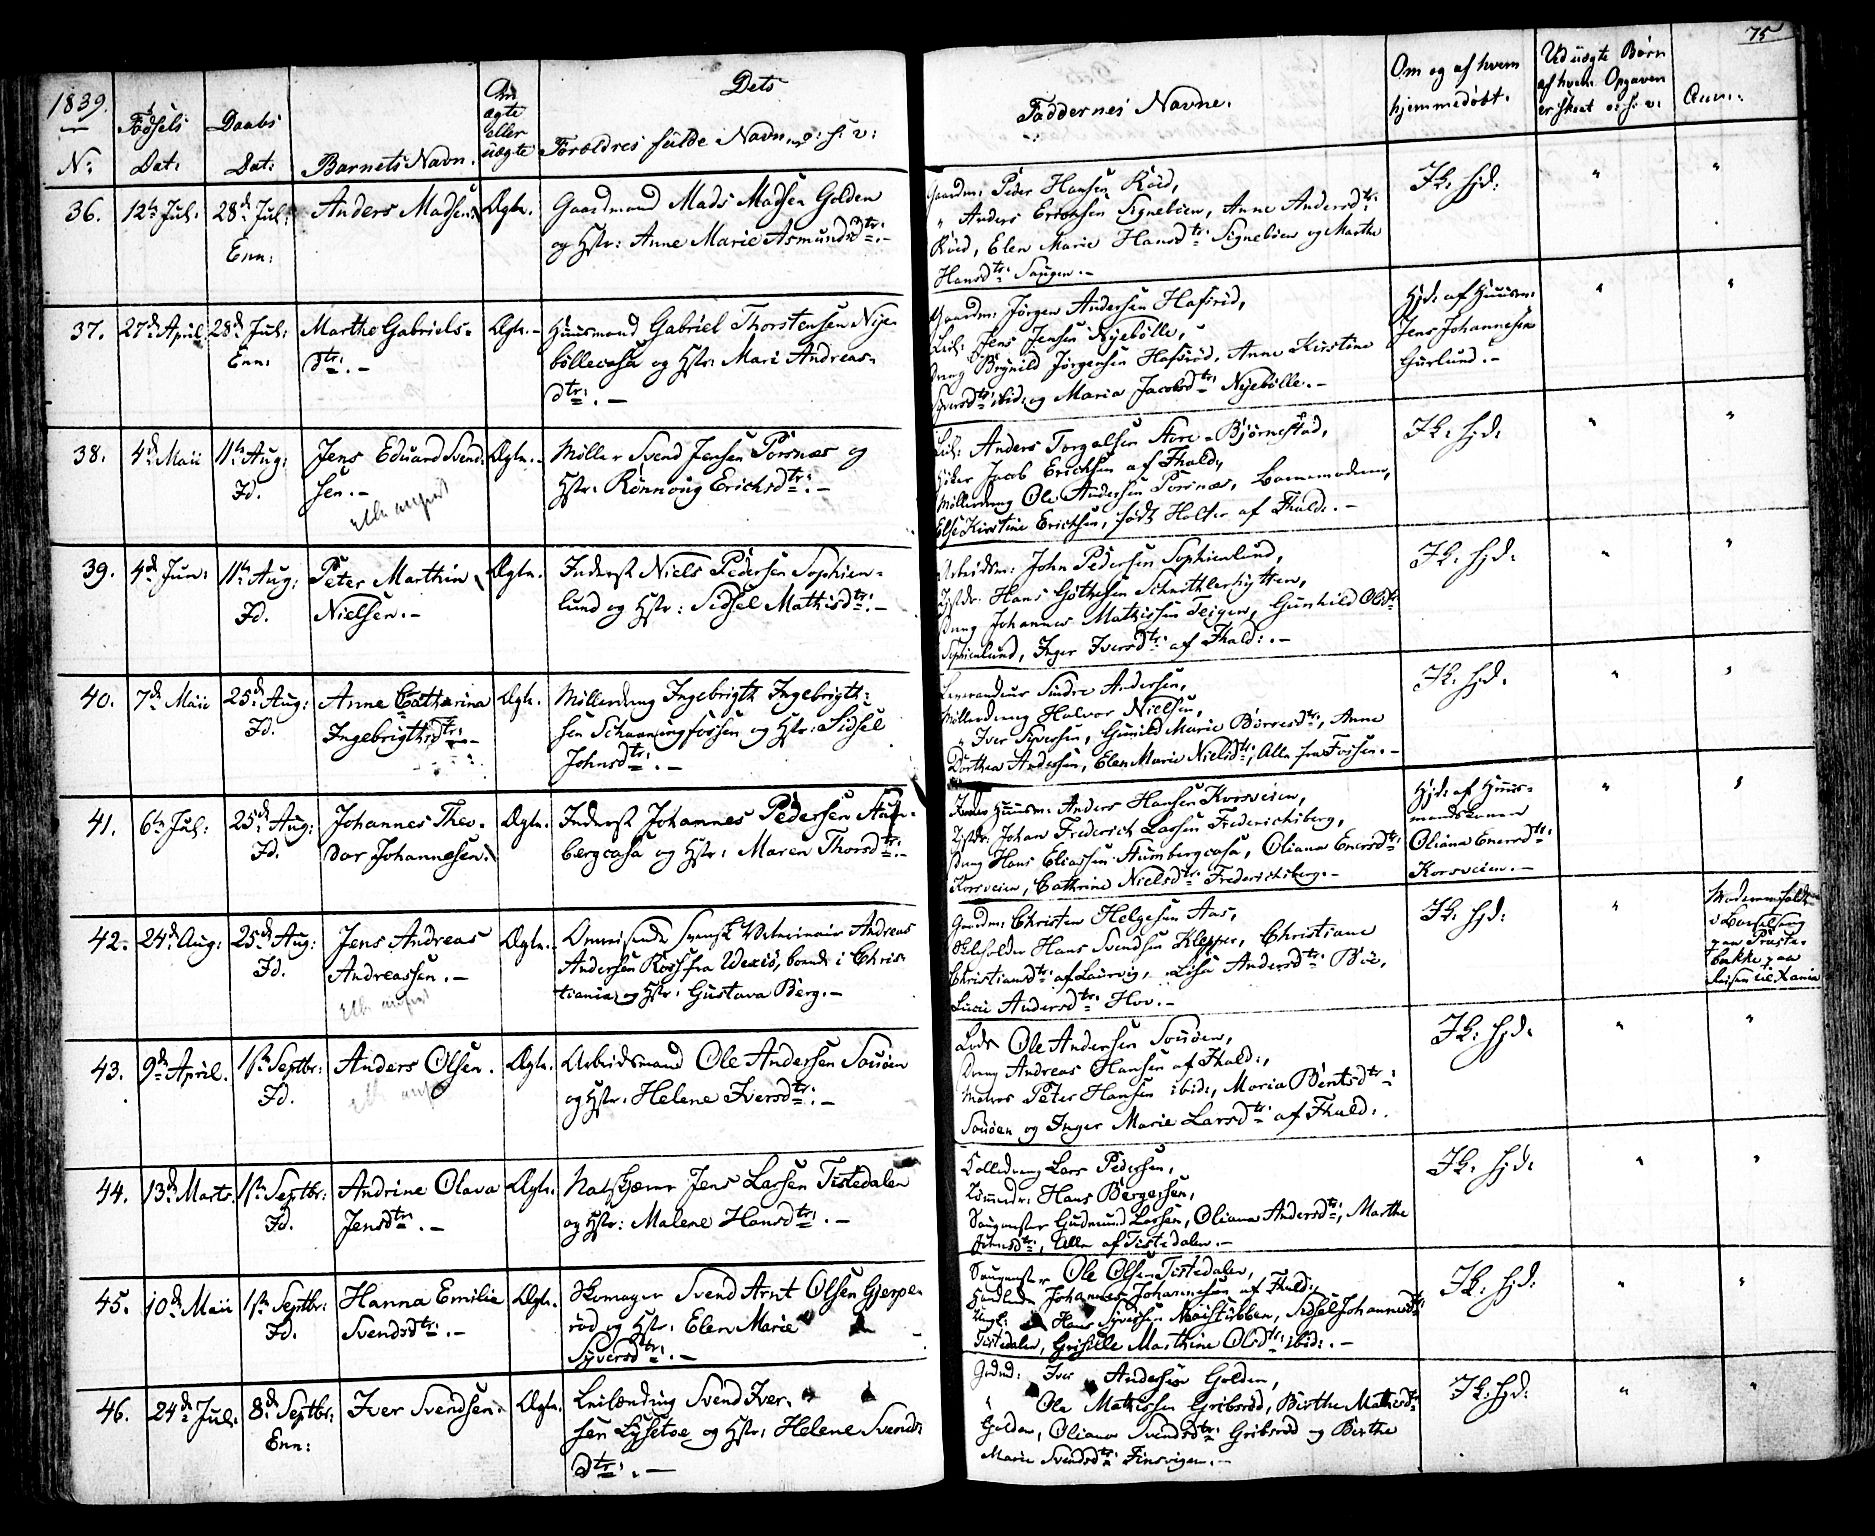 75
1839.
N:
Fødsels
Dat:
Daabs
Dat:
Barnets Navn.
Om
ægte
eller
uægte
Dets
Forældres fulde Navn, o: s: v:
Faddernes Navne.
Om og af hvem
hjemmedøbt.
Ved uægte Børn
af hvem Opgaven
er skeet o: s: v:
Anm:
36. 12te Jul: 28de Jul: Anders Madsen. Ægte. Gaardmand Mads Madsen Golden
Enn: og Hstr: Anne Marie Asmundsdtr:
Gaardm: Peder Hansen Röed,
" Anders Ericksen Signebøen, Anne Andersdtr:
Röed, Elen Marie Hansdtr: Signebøen og Marthe
Hansdtr: Saugen.
Jk. hjd:
37. 27de April 28de Jul: Marthe Gabriels- Ægte. Huusmand Gabriel Thorstensen Nye-
Enn: dtr: böllecasa og Hstr: Mari Andreas-
dtr:
Gaardm: Jørgen Andersen Hafsröd,
Leil: Jens Jensen Nyebölle,
Dreng Brynild Jørgensen Hafsröd, Anne Kirstine
Syversdtr: ibid: og Maria Jacobsdtr: Nyebölle.
Hjd: af Huusm:
Jens Johannesen
Gurlund.
38. 4de Maii 11te Aug: Jens Eduard Svend- Ægte. Møller Svend Jensen Porsnæs og
Fd. sen. Hstr: Rønnoug Erichsdtr:
11te august
Leil: Anders Torgalsen Store-Bjørnestad,
Jacob Erichsen af Fhald:,
Møllerdreng Ole Andersen Porsnæs, Baremoderen,
Else Kirstine Erichsen, født Holter af Fhald:
Jk. hjd:
39. 4de Jun: 11te Aug: Peter Marthin Ægte. Inderst Niels Pedersen Sophien-
Fd. Nielsen. lund og Hstr: Sidsel Mathisdtr:
Arbeidsm: John Pedersen Sophienlund,
Hans Göthesen Schnitlerhytten,
Dreng Johannes Mathissen Teigen, Gunhild Olsdtr
Sophienlund, Inger Iversdtr: af Fhald:
Jk. hjd:
40. 7de Maii 25de Aug: Anne Cathrina Ægte. Møllerdreng Ingebrigth Ingebrigth-
Fd. Ingebrigthsdtr: sen Schaaningfossen og Hstr: Sidsel
Johnsdtr:
Sindre Andersen,
Møllerdreng Halvor Nielsen,
" Iver Syversen, Gunild Marie Börresdtr:, Anne
Dorthea Andersen, Elen Marie Nielsdtr:, Alle fra Fossen.
Jk. hjd:
41. 6te Jul: 25de Aug: Johannes Theo- Ægte. Inderst Johannes Pedersen
Fd. dor Johannesen. bergcasa og Hstr: Maren Thorsdtr:
Huusm: Anders Hansen Korsveien,
Johan Frederich Larsen Frederichsberg,
Dreng Hans Eliassen Stumbergcasa, Oliana Enersdtr:
Korsveien, Cathrine Nielsdtr: Frederichsberg.
Hjd: af Huus-
mandskonen
Oliana Enersdtr:
Korsveien.
42. 24de Aug: 25de Aug: Jens Andreas Ægte. Omreisende Svensk Veterinair Andreas
Fd. Andreassen. Andersen Ross fra Wexiö, boende i Chris-
tiania og Hstr: Gustava Berg.
11te august
Gaardm: Christen Helgesen Aas,
Skeholder Hans Svendsen Klepper, Christiane
Christiansdtr: af Laurvig, Lisa Andersdtr: Böe,
Lucie Andersdtr: Hov.
Jk. hjd:
Moderen
i Barselseng
paa Præste-
bakke paa
Reisen til Xania
43. 9de April. 1ste Septbr: Anders Olsen. Ægte. Arbeidsmand Ole Andersen Sauöen
Fd. og Hstr: Helene Iversdtr:
11te august
Lods Ole Andersen Sauöen,
Dreng Andreas Hansen af Fhald:,
Matros Peter Hansen ibid:, Maria Bentsdtr:
Sauöen og Inger Marie Larsdtr: af Fhald:
Jk. hjd:
44. 13de Marts. 1ste Septbr: Andrine Olava Ægte. Jens Larsen Tistedalen
Fd. Jensdtr. og Hstr: Malene Hansdtr:
Lars Pedersen,
Hans Börgersen,
Saugmester Gudmund Larsen, Oliana Andersdtr:, Marthe
Johnsdtr:, Alle af Tistedalen.
Jk. hjd:
45. 10de Maii 1ste Septbr: Hanna Emilie Ægte. Skomager Svend Arnt Olsen Gjerpe-
Fd. Svendsdtr: röd og Hstr: Elen Marie
Syversdtr:
Saugmester Ole Olsen Tistedalen,
Johannes Johannesen af Fhald:,
Ungk: Hans Syversen Maistubben, Sidsel Johannesdtr:
Tistedalen, Grisille Marthine Olsdtr: ibid:
Jk. hjd:
46. 24de Jul: 8de Septbr: Iver Svendsen. Ægte. Leilænding Svend Iver-
Enn: sen Lysetoe og Hstr: Helene Svends-
dtr:
Iver Andersen Golden,
" Ole Mathissen Gribsröd, Birthe Mathisdtr
Golden, Oliana Svendsdtr: Gribsröd og Birthe
Marie Svendsdtr: Finsvigen.
Jk. hjd: